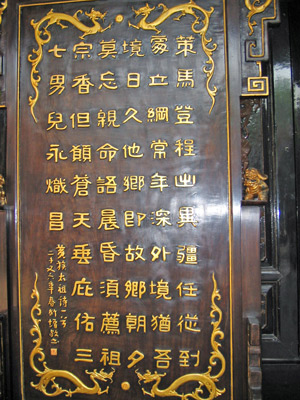 策馬登程出異疆任從到
處立綱常年深外境猶吾
境日久他鄉即故鄉朝夕
莫忘親命語晨昏須薦祖
宗香但願蒼天垂庇佑三
七男兒永熾昌
黄族太祖詩一首
年春